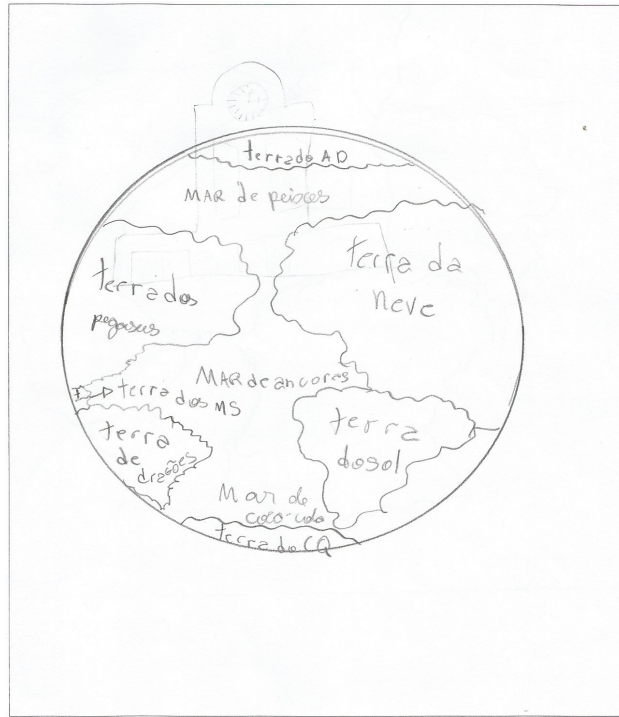 terra do AD
MAR de peixes
terra dos
pegasus
terra da
neve
MAR de ancores
terra dos MS
terra
de
dragões
terra
do sol
Mar de
terra do CQ